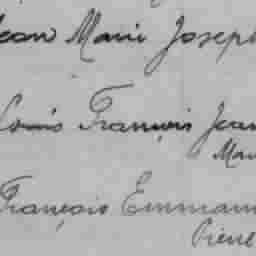 Jean Marie Joseph
Louis François Jean
Mar
François Emmanu
Pierre